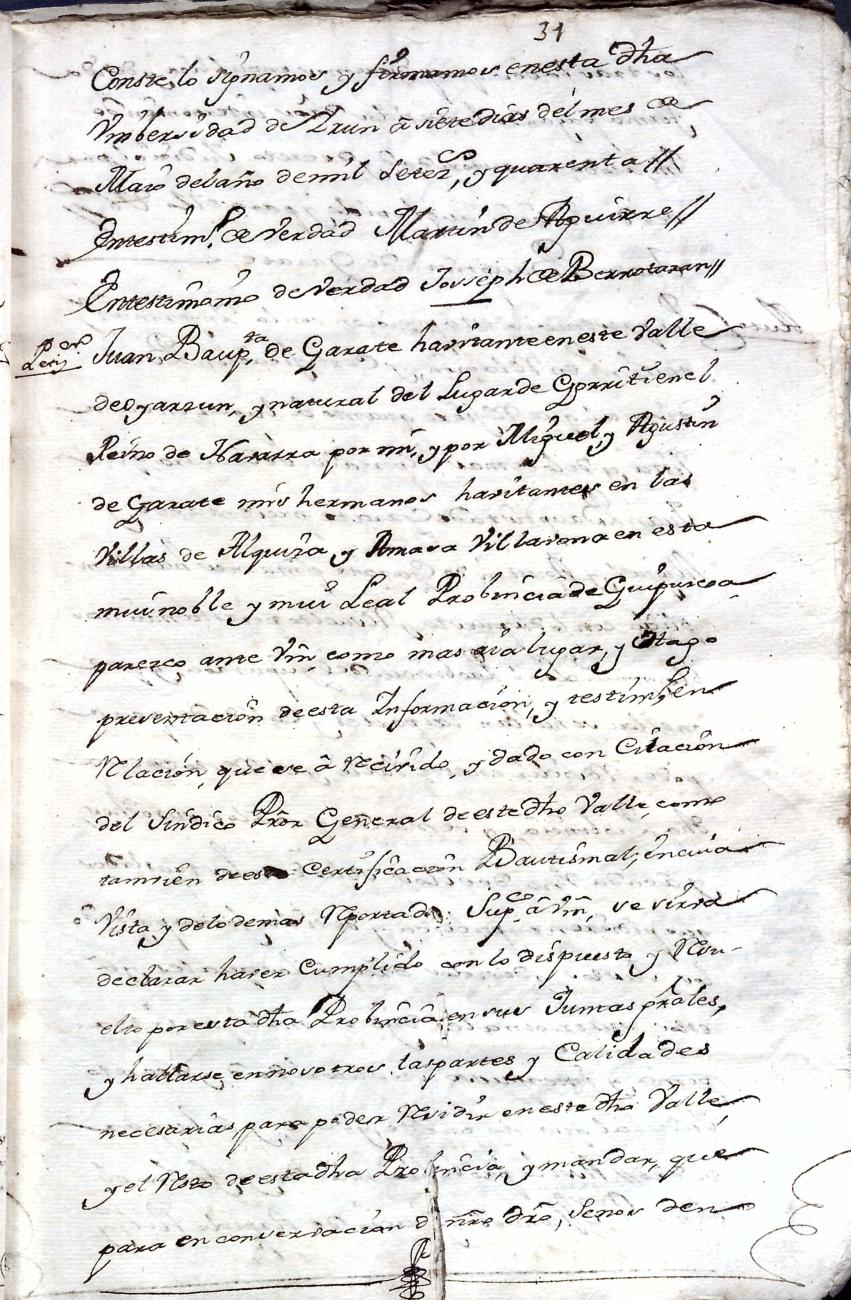 31
Conste, lo signamos y firmamos en esta dha
Vnibersidad de Yrun â siete dias del mes de
Maio del año de mil Setezos, y quarenta //
En testimo de verdad Martin de Aguirre //
En testimonio de verdad Josseph de Berrotaran //
Juan Baupta de Garate havitante en este Valle
de oyarzun, y natural del Lugar de Gorriti en el
Reino de Navarra por mi, y por Miguel, y Agustin
de Garate mis hermanos havitantes en las
Villas de Alquiza, y Amasa Villavona en esta
mui noble y mui Leal Probincia de Guipuzcoa
parezco ante Vm, como mas aia lugar, y Hago
presentacion de esta Informacion, y testimo, en
Relacion, que se â recivido, y dado con Citacion
del Sindico Pror General de este dho Valle, como
tamvien de esta Certificacion Bautismal; en cuia
Vista y de lo demas Reportado; Supco â Vm, se sirva
declarar haver Cumplido con lo dispuesto y Resu-
elto por esta dha Probincia en sus Juntas grales,
y hallarse en nosotros las partes y Calidades
necesarias, para poder Residir en este dho Valle,
y el Resto de esta dha Probincia, y mandar, que
para en conservacion de nro dro, se nos den